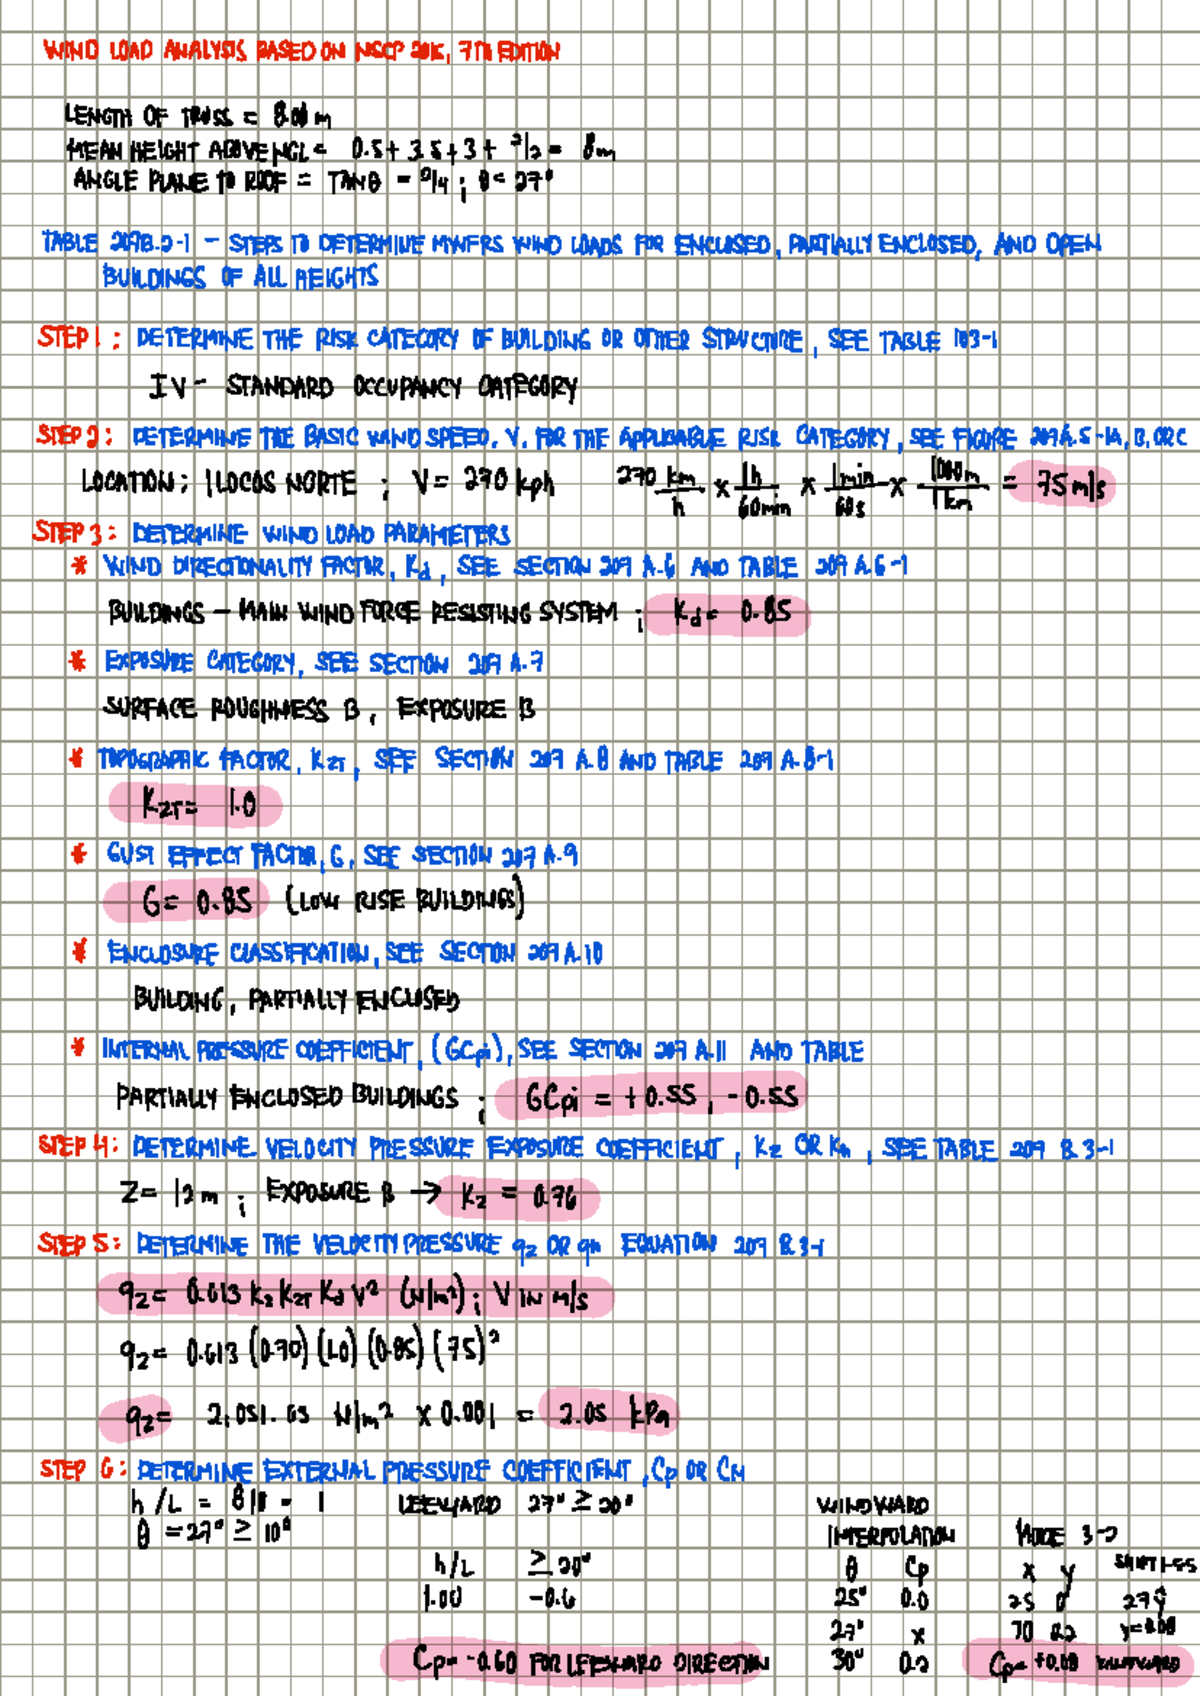 WIND LOAD ANALYSIS BASED ON NSCP 2015, 7TH EDITION
LENGTH OF TRUSS = 8.00 m
MEAN HEIGHT ABOVE NGL = 0.5 + 3.5 + 3 + 2/2 = 8m
ANGLE PLANE TO ROOF = TANθ = 2/4 ; θ = 27°
TABLE 207B.2-1 - STEPS TO DETERMINE MWFRS WIND LOADS FOR ENCLOSED, PARTIALLY ENCLOSED, AND OPEN
BUILDINGS OF ALL HEIGHTS
STEP 1 : DETERMINE THE RISK CATEGORY OF BUILDING OR OTHER STRUCTURE, SEE TABLE 103-1
IV - STANDARD OCCUPANCY CATEGORY
STEP 2 : DETERMINE THE BASIC WIND SPEED, V, FOR THE APPLICABLE RISK CATEGORY, SEE FIGURE 207A.5-1A, B, OR C
LOCATION ; ILOCOS NORTE ; V = 270 kph 270 km/h x 1h/60min x 1min/60s x 1000m/1km = 75 m/s
STEP 3 : DETERMINE WIND LOAD PARAMETERS
* WIND DIRECTIONALITY FACTOR, Kd, SEE SECTION 207 A.6 AND TABLE 207 A.6-1
BUILDINGS - MAIN WIND FORCE RESISTING SYSTEM ; Kd = 0.85
* EXPOSURE CATEGORY, SEE SECTION 207 A.7
SURFACE ROUGHNESS B, EXPOSURE B
* TOPOGRAPHIC FACTOR, KzT, SEE SECTION 207 A.8 AND TABLE 207 A.8-1
KzT = 1.0
* GUST EFFECT FACTOR, G, SEE SECTION 207 A.9
G = 0.85 (LOW RISE BUILDINGS)
* ENCLOSURE CLASSIFICATION, SEE SECTION 207 A.10
BUILDING, PARTIALLY ENCLOSED
* INTERNAL PRESSURE COEFFICIENT, (GCpi), SEE SECTION 207 A.11 AND TABLE
PARTIALLY ENCLOSED BUILDINGS ; GCpi = +0.55, -0.55
STEP 4 : DETERMINE VELOCITY PRESSURE EXPOSURE COEFFICIENT, Kz OR Kh, SEE TABLE 207 B.3-1
Z = 12 m ; EXPOSURE B → Kz = 0.76
STEP 5 : DETERMINE THE VELOCITY PRESSURE qz OR qh EQUATION 207 B.3-1
qz = 0.613 Kz KzT Kd V² (N/m²) ; V IN m/s
qz = 0.613 (0.70) (1.0) (0.85) (75)²
qz = 2,051.63 N/m² x 0.001 = 2.05 kPa
STEP 6 : DETERMINE EXTERNAL PRESSURE COEFFICIENT, Cp OR CN
h/L = 8/8 = 1 LEEWARD 27° ≥ 20° WINDWARD
θ = 27° ≥ 10° INTERPOLATION MODE 3-2
h/L ≥ 20° θ Cp x y
1.00 -0.6 25° 0.0 25 0 27ŷ
27° x 30 0.2 y = 0.08
Cp = -0.60 FOR LEEWARD DIRECTION 30° 0.2 Cp = +0.08 WINDWARD